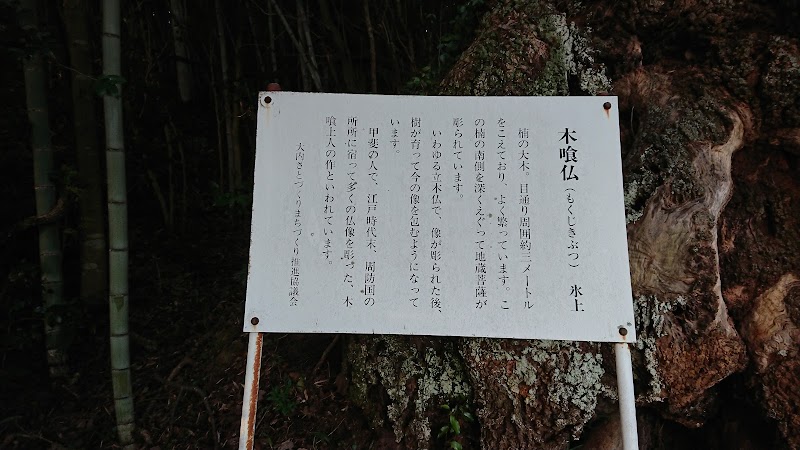 木喰仏（もくじきぶつ）　氷上
楠の大木。目通り周囲約三メートル
をこえており、よく繁っています。こ
の楠の南側を深くえぐって地蔵菩薩が
彫られています。
いわゆる立木仏で、像が彫られた後、
樹が育って今の像を包むようになって
います。
甲斐の人で、江戸時代末、周防国の
所所に宿って多くの仏像を彫った、木
喰上人の作といわれています。
大内さとづくりまちづくり推進協議会